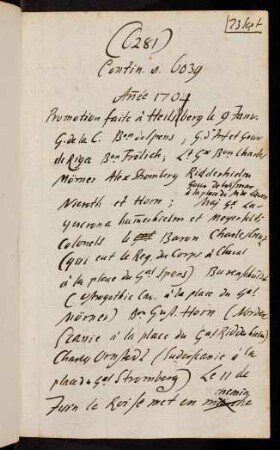 23 Sept
(6281)
Contin. a. 6039
Année 1704
Promotion faite à Heilsberg le 9 Janv.
G. de la C. Bon de Spens; G. d'Inf et Gouv
de Riga Bon Frölich; Lt Gx Bon Charles
Mörner Alex Stromberg Ridderhielm
Gouv de Wismar
à la place de
Nieroth et Horn; Maj Gx La-
gercrona hummerhielm et Meyerfeldt
Colonels le Baron Charles
(qui eut le Reg. du Corps à Cheval
à la place du Gal Spens)
(Ostrogothie Cav. à la place du Gal
Mörner) Bn Gust. Horn (Norder
Scanie à la place du Gal Ridderhielm)
Charles Ornstedt (Suderscanie à la
place du Gal Stromberg) Le 11 de
Juin le Roi se met en chemin